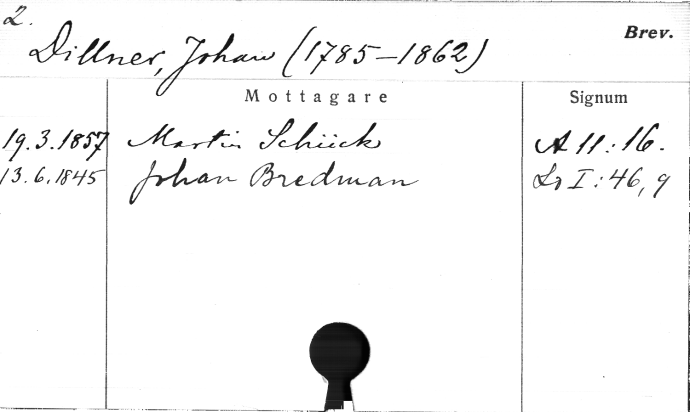 2.
Dillner, Johan (1785–1862) Brev.
Mottagare Signum
19.3.1857 Martin Schück A 11:16.
13.6.1845 Johan Bredman I:46,9